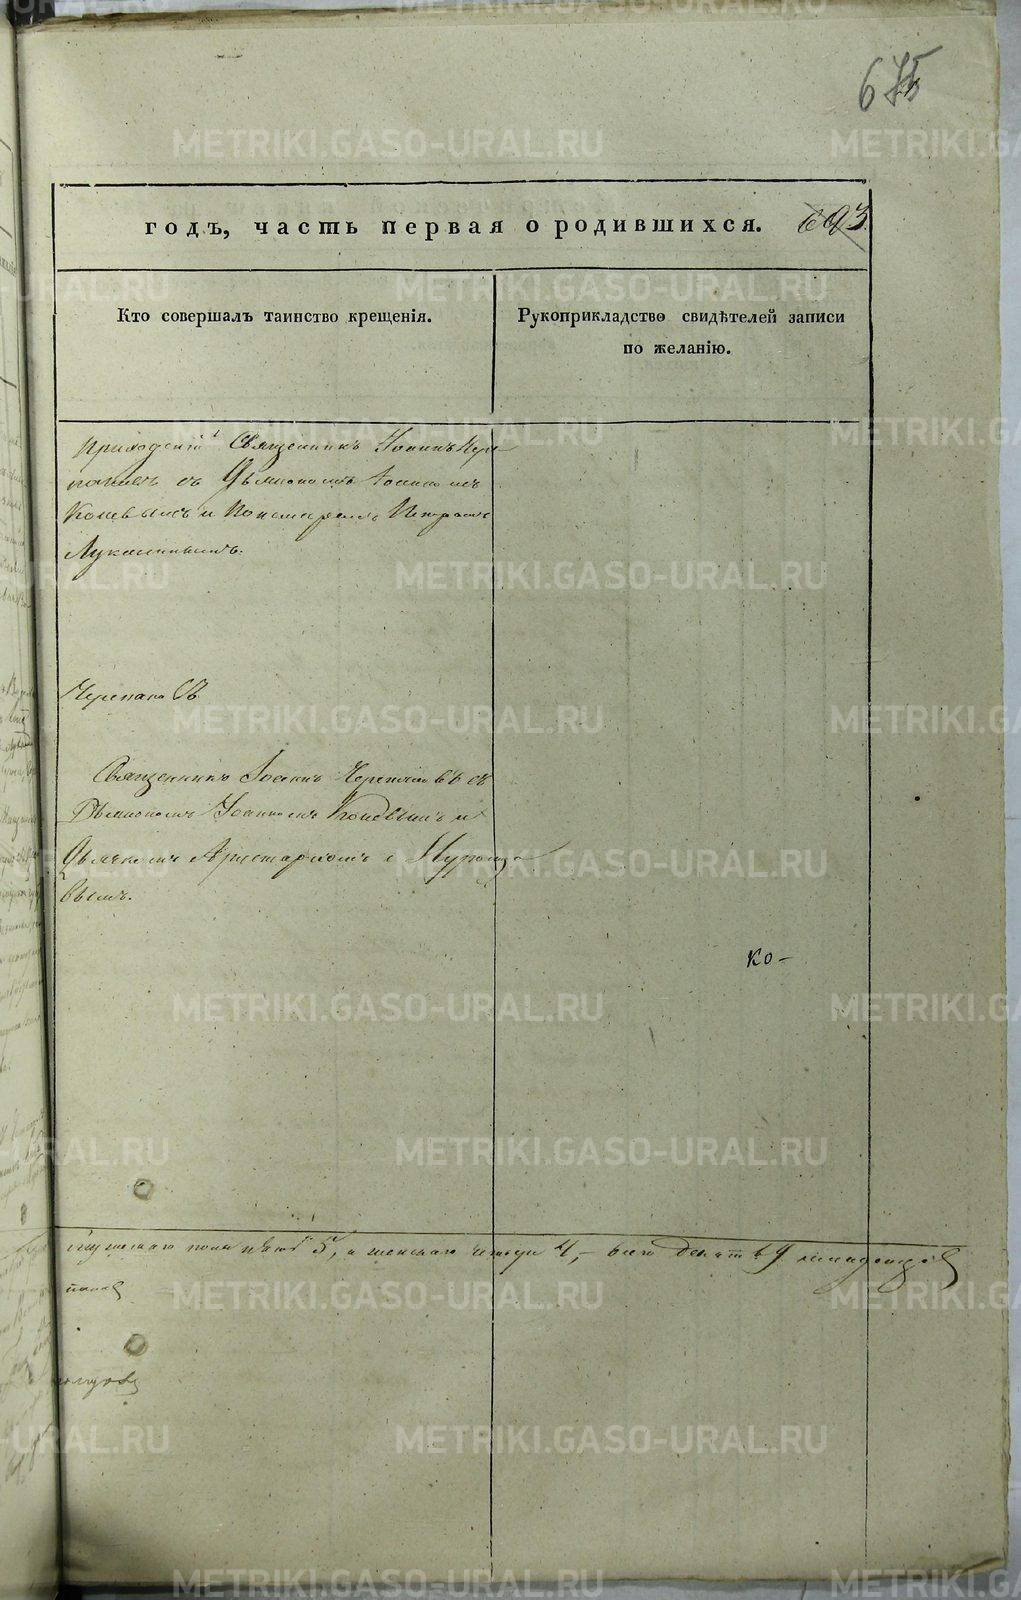 675
годъ, часть первая о родившихся. 693
Кто совершалъ таинство крещенія.
Рукоприкладство свидѣтелей записи
по желанію.
Приходскій Священникъ Іоаннъ Чере
пановъ съ Дьякономъ Іоанномъ
Коневымъ и Пономаремъ Петромъ
Лукинымъ.
Черепановъ
Священникъ Іоаннъ Черепановъ съ
Дьякономъ Іоанномъ Коневымъ и
Дьячкомъ Аристархомъ
вымъ.
ко-
мужескаго пола пять 5, а женскаго четыре 4, - всего девять 9 младенцовъ
METRIKI.GASO-URAL.RU